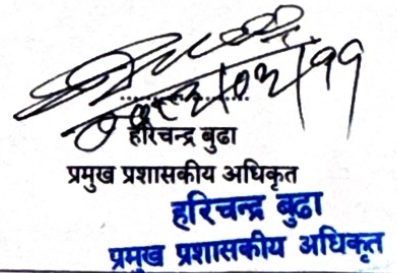 हरिचन्द्र बुढा
प्रमुख प्रशासकीय अधिकृत
हरिचन्द्र बुढा
प्रमुख प्रशासकीय अधिकृत